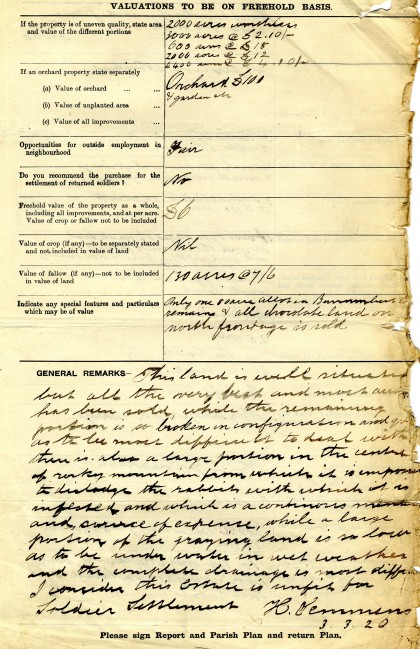 VALUATIONS TO BE ON FREEHOLD BASIS.
If the property is of uneven quality, state area and value of the different portions
2000 acres worthless
3000 acres @ £2.10/-
600 acres @ £18
2000 acres @ £12
If an orchard property state separately
(a) Value of orchard ... ...
Orchard £100
& garden etc
(b) Value of unplanted area ...
(c) Value of all improvements ...
Opportunities for outside employment in neighbourhood
Fair
Do you recommend the purchase for the settlement of returned soldiers?
No
Freehold value of the property as a whole, including all improvements, and at per acre. Value of crop or fallow not to be included
£6
Value of crop (if any)—to be separately stated and not included in value of land
Nil
Value of fallow (if any)—not to be included in value of land
130 acres @ 7/6
Indicate any special features and particulars which may be of value
Only one acre allot in
remains & all chocolate land on
north frontage is sold
GENERAL REMARKS— This land is well situated
but all the very best and most
has been sold, while the remaining
portion is so broken in configuration and
as to be most difficult to deal with
there is also a large portion in the centre
of rocky mountain from which it is
to dislodge the rabbits with which it is
infested and which is a continous
and source of expense, while a large
portion of the grazing land is so low
as to be under water in wet weather
and the complete drainage is most
I consider this Estate is unfit for
Soldier Settlement H.
3 3 20
Please sign Report and Parish Plan and return Plan.